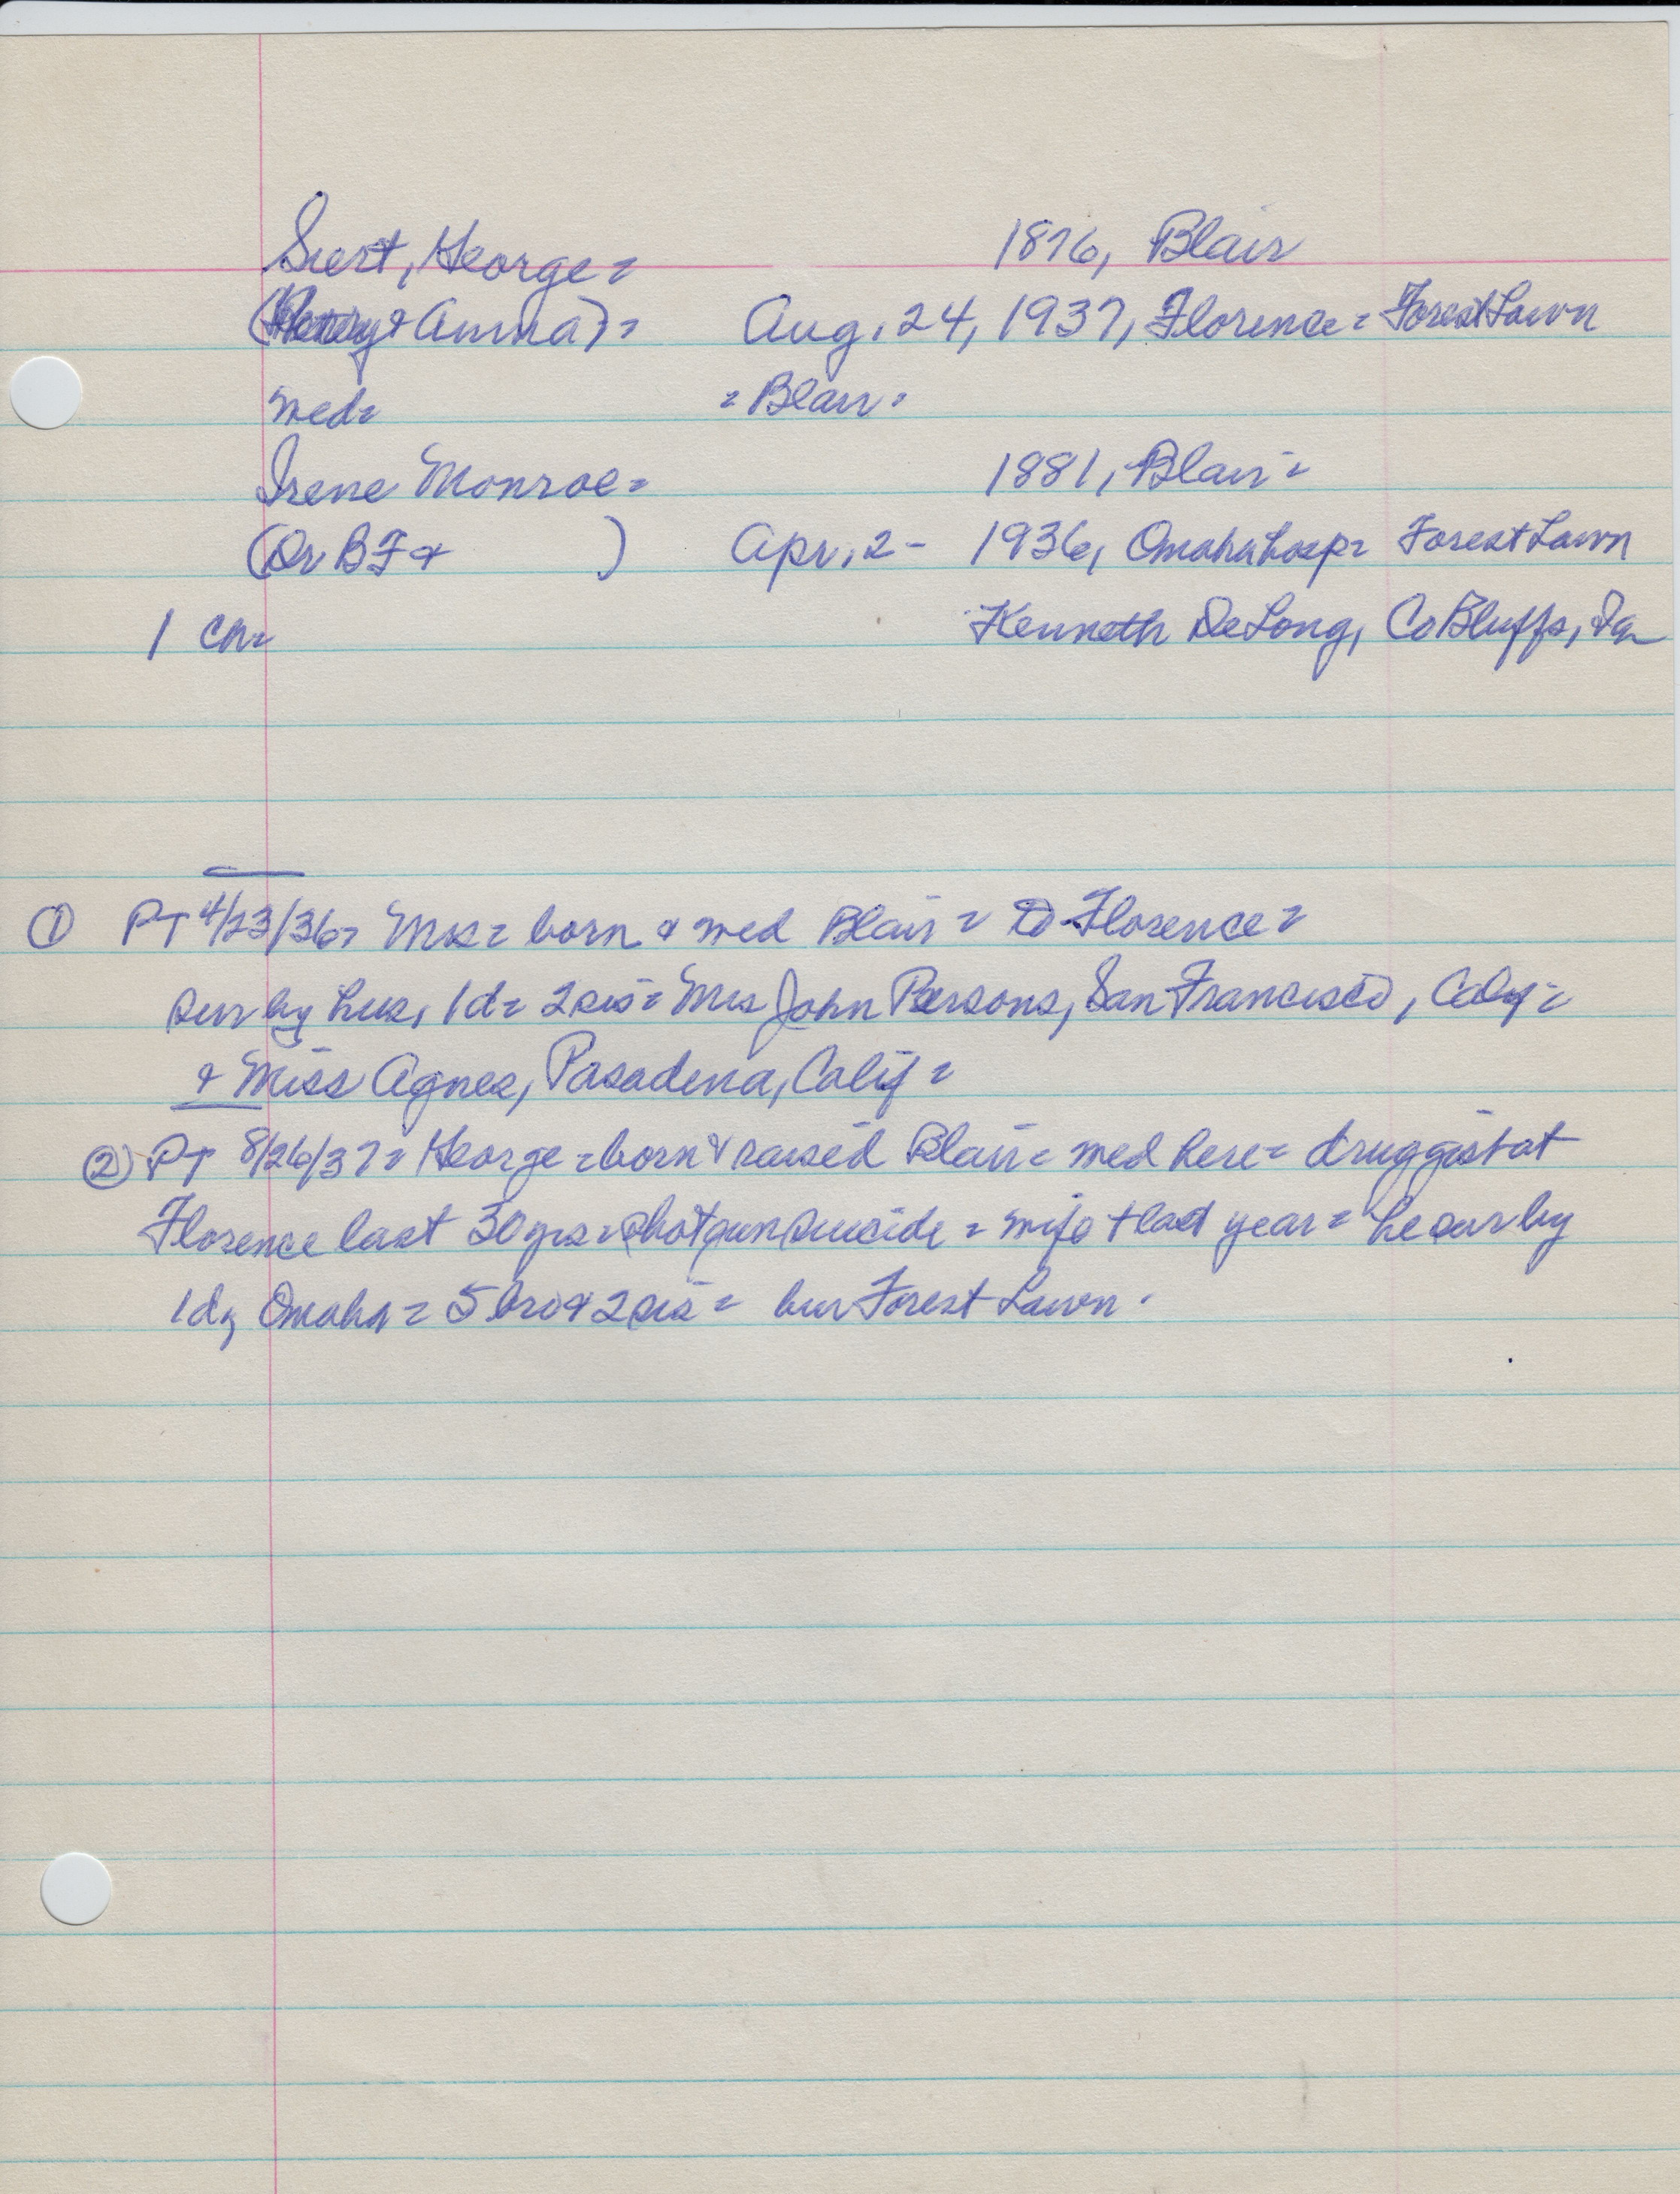 Siert, George = 1876, Blair
(Henry & Anna) = Aug. 24, 1937, Florence = Forest Lawn
med = = Blair =
Irene Monroe = 1881, Blair =
(Dr B F & ) Apr. 2 - 1936, Omaha hosp = Forest Lawn
1 ch = Kenneth DeLong, Co Bluffs, Ia
① PT 4/23/36 = Mrs = born & med Blair = to Florence =
sur by hus, 1 d = 2 sis = Mrs John Parsons, San Francisco, Calif =
& Miss Agnes, Pasadena, Calif =
② PT 8/26/37 = George = born & raised Blair = med here = druggist at
Florence last 30 yrs = shotgun suicide = wife + last year = he sur by
1 d, Omaha = 5 bro & 2 sis = bur Forest Lawn .